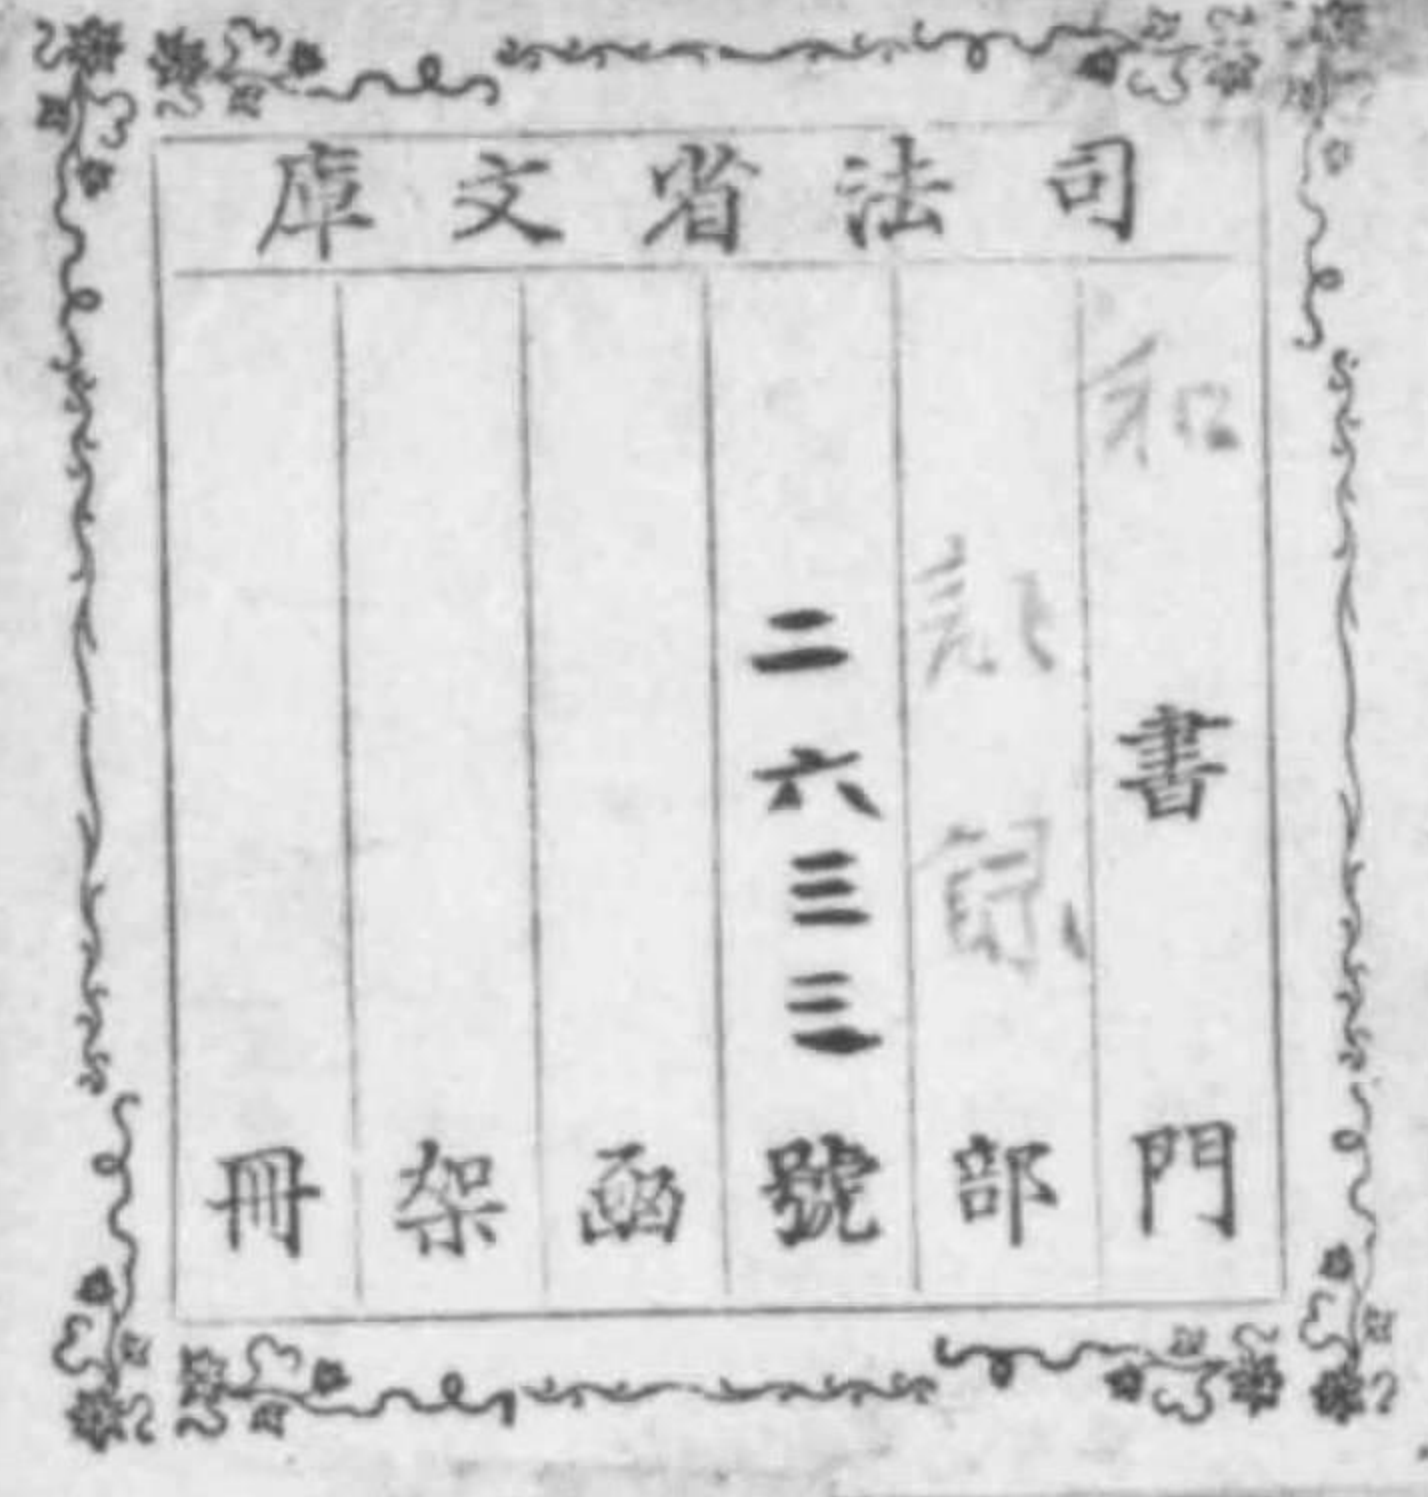 司法省文庫
和書門
部
二六三三號
函
架
冊